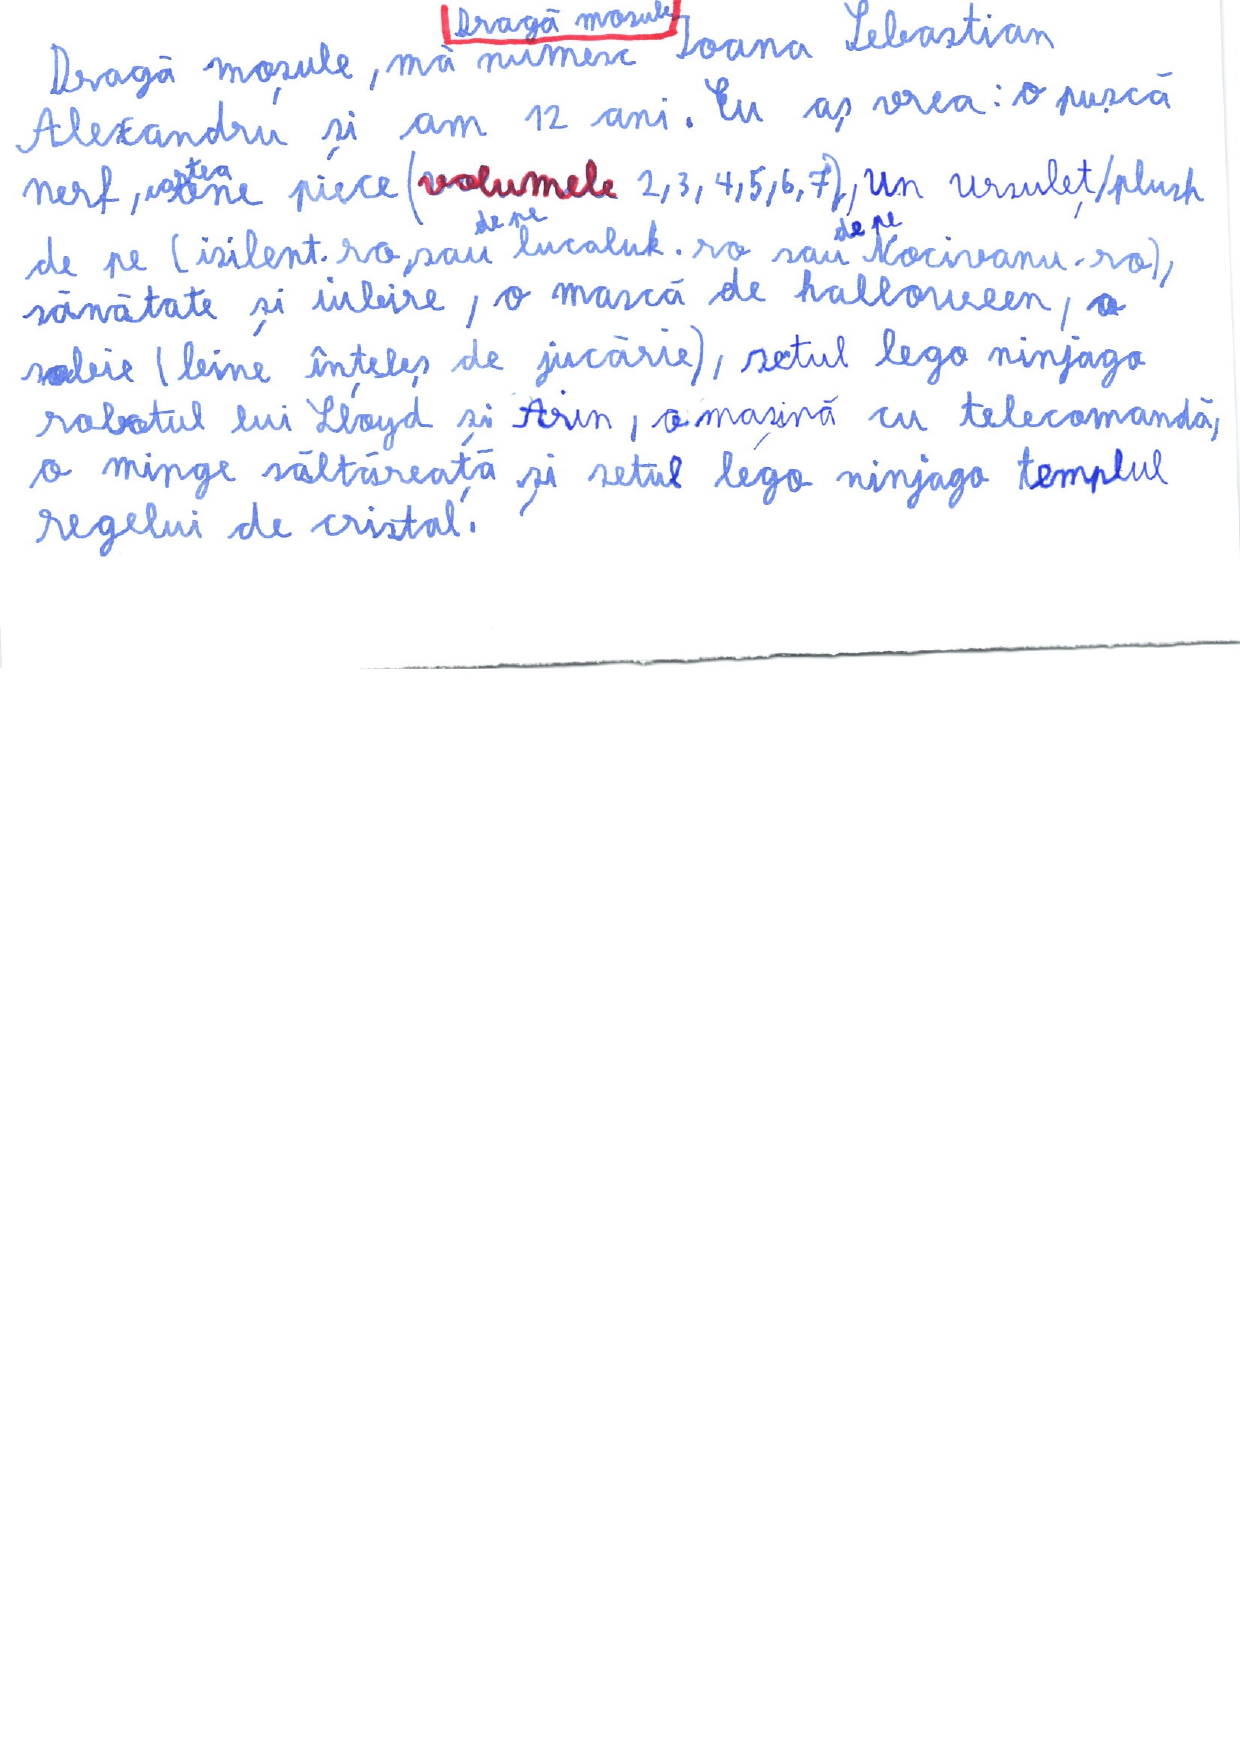 Dragă mosule
Dragă moșule, mă numesc Ioana Sebastian
Alexandru și am 12 ani. Eu aș vrea: o pușcă
nerf, cartea one piece (volumele 2, 3, 4, 5, 6, 7), un ursuleț/plush
de pe (isilent.ro, sau de pe lucaluk.ro sau de pe Kocivanu.ro),
sănătate și iubire, o mască de halloween, o
sabie (bine înțeles de jucărie), setul lego ninjago
robotul lui Lloyd și Arin, o mașină cu telecomandă,
o minge săltăreață și setul lego ninjago templul
regelui de cristal.